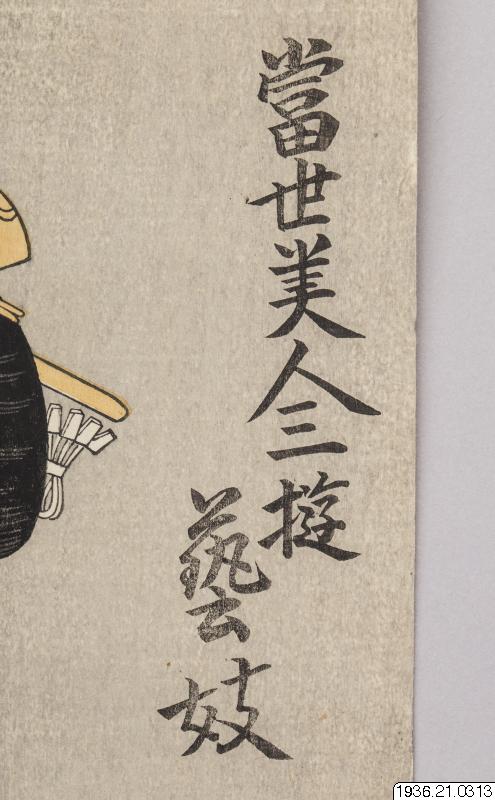 當世美人三遊
藝妓
1936.21.0313